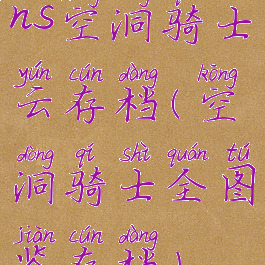 ns空洞骑士
yún cún dàng kōng
云存档(空
dòng qí shì quán tú
洞骑士全图
jiàn cún dàng
鉴存档)